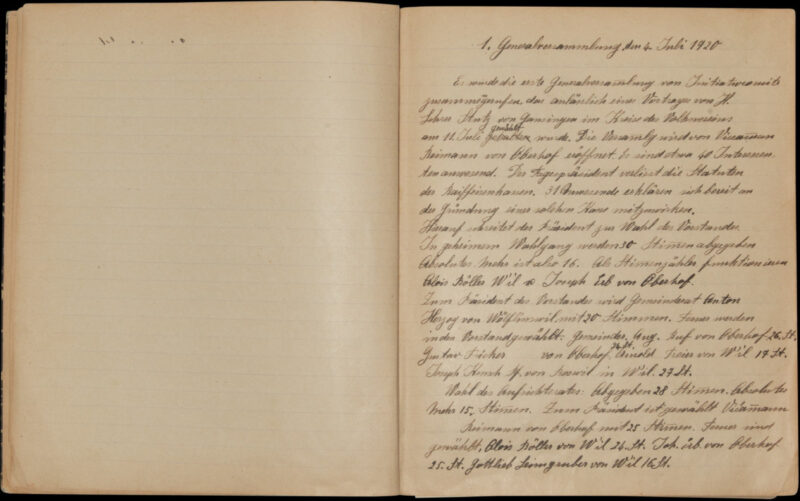 1. Generalversammlung den 4. Juli 1920
Es wurde die erste Generalversammlung von Initiativcomite
zusammengerufen, das anlässlich eines Vortrages von H.
Lehrer Stutz von Gansingen im Kreise des Volksvereins
am 11. Juli gewählt wurde. Die Versamlg wird von Vizeammann
Reimann von Oberhof eröffnet. Es sind etwa 40 Interessen
ten anwesend. Der Tagespräsident verliest die Statuten
der Raiffeisenkassen. 31 Anwesende erklären sich bereit an
der Gründung einer solchen Kasse mitzuwirken.
Hierauf schreitet der Präsident zur Wahl des Vorstandes.
In geheimem Wahlgang werden 30 Stimen abgegeben
Absolutes Mehr ist also 16. Als Stimenzähler funktionieren
Alois Böller Wil & Joseph Erb von Oberhof.
Zum Präsident des Vorstandes wird Gemeinderat Anton
Herzog von Wölflinswil mit 20 Stimmen. Ferner werden
in den Vorstand gewählt: Gemeinder. Aug. Ruf von Oberhof 26. St.
Gustav Fricker von Oberhof 24 St. Arnold Freier von Wil 17. St.
Joseph von in Wil. 27. St.
Wahl des Aufsichtsrates: Abgegeben 28 Stimen. Absolutes
Mehr 15. Stimen. Zum Präsident ist gewählt Vizeammann
Reimann von Oberhof mit 25 Stimen. Ferner sind
gewählt, Alois Böller von Wil 24. St. Joh. Erb von Oberhof
25. St. Gottlieb Leimgruber von Wil 16. St.